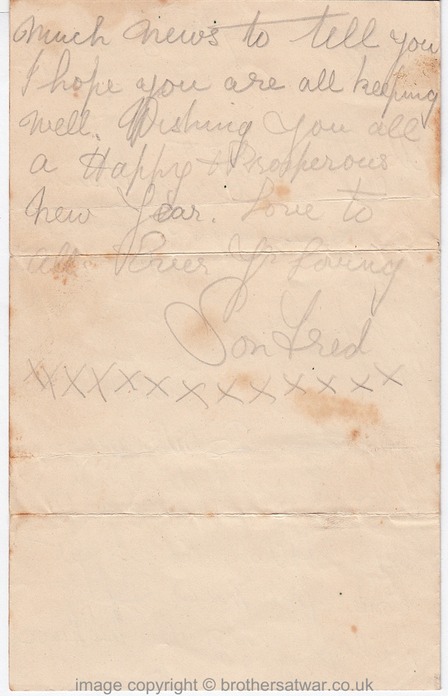 much news to tell you
I hope you are all keeping
well. Wishing you all
a Happy & Prosperous
new Year. Love to
all. Ever Yr loving
Son Fred
XXXXXXXXXXXXX
image copyright © brothersatwar.co.uk